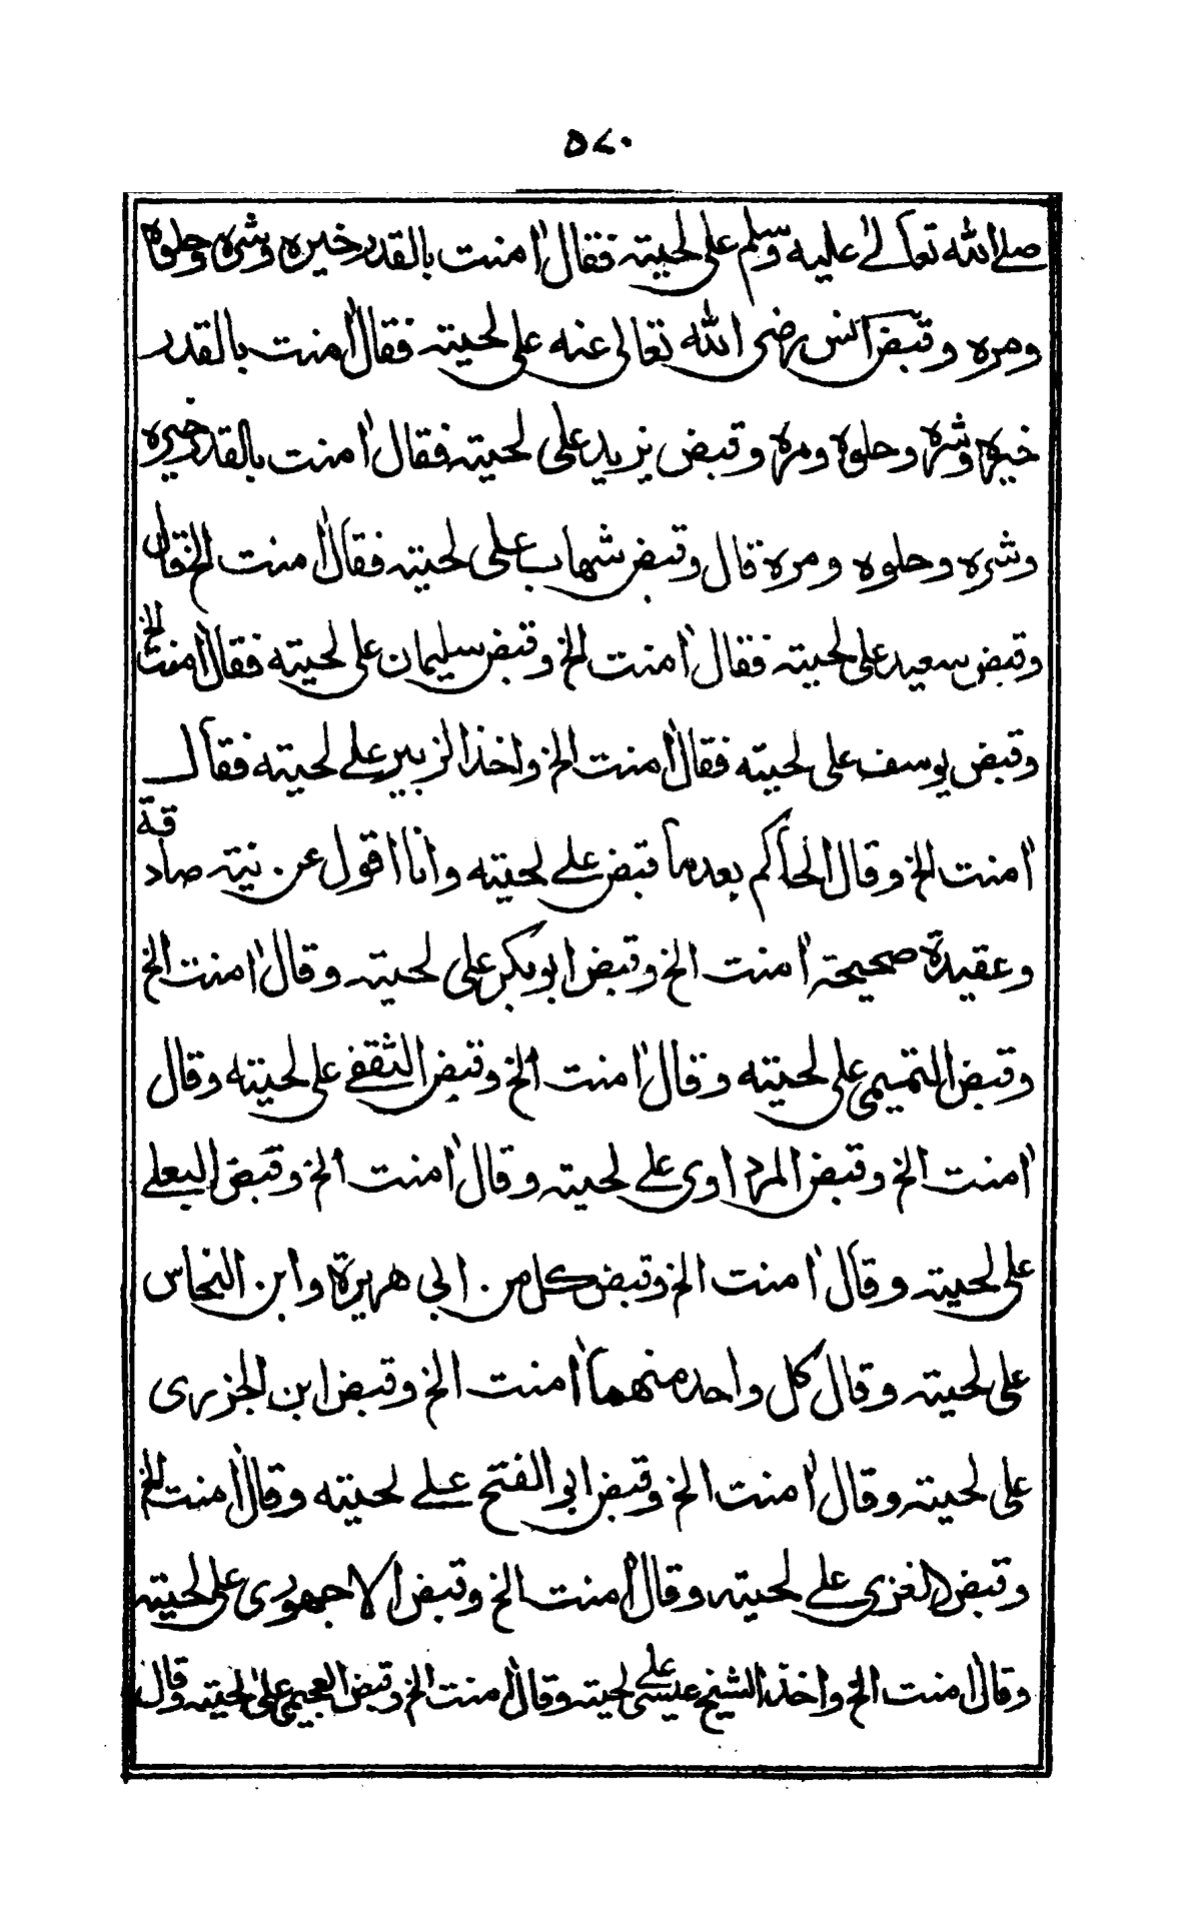 ٥٧٠
صلے اللّٰه تعالٰے علیه وسلم علی لحیته فقال اٰمنت بالقدر خیره وشره وحلوه
ومره وقبض انس رضی اللّٰه تعالی عنه علی لحیته فقال اٰمنت بالقدر
خیره وشره وحلوه ومره وقبض یزید علی لحیته فقال اٰمنت بالقدر خیره
وشره وحلوه ومره قال وقبض شهاب علی لحیته فقال اٰمنت الخ قال
وقبض سعید علی لحیته فقال اٰمنت الخ وقبض سلیمان علی لحیته فقال اٰمنت الخ
وقبض یوسف علی لحیته فقال اٰمنت الخ واخذ الزبیر علے لحیته فقال
اٰمنت الخ وقال الحاکم بعد ما قبض علے لحیته وانا اقول عن نیته صادقة
وعقیدة صحیحته اٰمنت الخ وقبض ابو بکر علی لحیته وقال اٰمنت الخ
وقبض التمیمی علی لحیته وقال اٰمنت الخ وقبض الثقفے علی لحیته وقال
اٰمنت الخ وقبض المرداوی علے لحیته وقال اٰمنت الخ وقبض البعلے
علی لحیته وقال اٰمنت الخ وقبض کل من ابی هریرة وابن النحاس
علی لحیته وقال کل واحد منهما اٰمنت الخ وقبض ابن الجزری
علی لحیته وقال اٰمنت الخ وقبض ابو الفتح علے لحیته وقال اٰمنت الخ
وقبض الغزی علے لحیته وقال اٰمنت الخ وقبض الاجهوری علی لحیته
وقال اٰمنت الخ واخذ الشیخ عیسی علے لحیته وقال اٰمنت الخ وقبض العجیمی علیٰ لحیته وقال